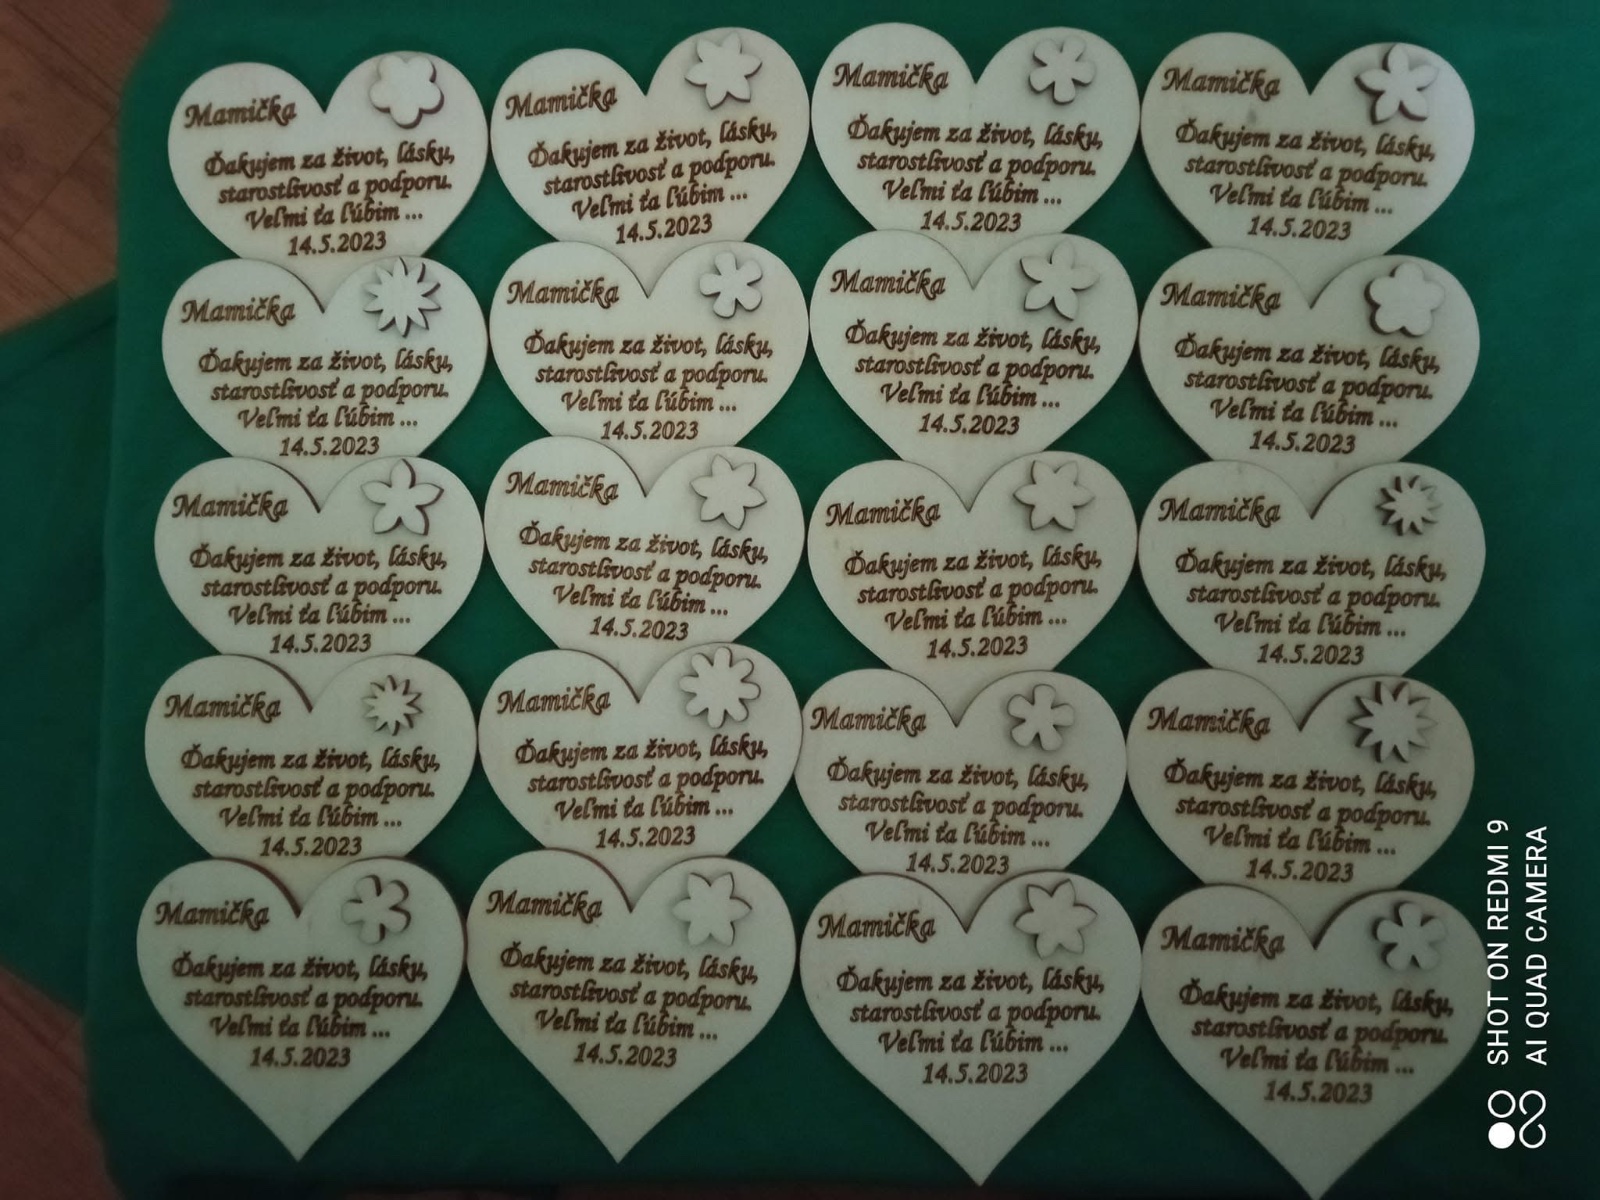 Mamička
Ďakujem za život, lásku,
starostlivosť a podporu.
Veľmi ťa ľúbim ...
14.5.2023
Mamička
Ďakujem za život, lásku,
starostlivosť a podporu.
Veľmi ťa ľúbim ...
14.5.2023
Mamička
Ďakujem za život, lásku,
starostlivosť a podporu.
Veľmi ťa ľúbim ...
14.5.2023
Mamička
Ďakujem za život, lásku,
starostlivosť a podporu.
Veľmi ťa ľúbim ...
14.5.2023
Mamička
Ďakujem za život, lásku,
starostlivosť a podporu.
Veľmi ťa ľúbim ...
14.5.2023
Mamička
Ďakujem za život, lásku,
starostlivosť a podporu.
Veľmi ťa ľúbim ...
14.5.2023
Mamička
Ďakujem za život, lásku,
starostlivosť a podporu.
Veľmi ťa ľúbim ...
14.5.2023
Mamička
Ďakujem za život, lásku,
starostlivosť a podporu.
Veľmi ťa ľúbim ...
14.5.2023
Mamička
Ďakujem za život, lásku,
starostlivosť a podporu.
Veľmi ťa ľúbim ...
14.5.2023
Mamička
Ďakujem za život, lásku,
starostlivosť a podporu.
Veľmi ťa ľúbim ...
14.5.2023
Mamička
Ďakujem za život, lásku,
starostlivosť a podporu.
Veľmi ťa ľúbim ...
14.5.2023
Mamička
Ďakujem za život, lásku,
starostlivosť a podporu.
Veľmi ťa ľúbim ...
14.5.2023
Mamička
Ďakujem za život, lásku,
starostlivosť a podporu.
Veľmi ťa ľúbim ...
14.5.2023
Mamička
Ďakujem za život, lásku,
starostlivosť a podporu.
Veľmi ťa ľúbim ...
14.5.2023
Mamička
Ďakujem za život, lásku,
starostlivosť a podporu.
Veľmi ťa ľúbim ...
14.5.2023
Mamička
Ďakujem za život, lásku,
starostlivosť a podporu.
Veľmi ťa ľúbim ...
14.5.2023
Mamička
Ďakujem za život, lásku,
starostlivosť a podporu.
Veľmi ťa ľúbim ...
14.5.2023
Mamička
Ďakujem za život, lásku,
starostlivosť a podporu.
Veľmi ťa ľúbim ...
14.5.2023
Mamička
Ďakujem za život, lásku,
starostlivosť a podporu.
Veľmi ťa ľúbim ...
14.5.2023
Mamička
Ďakujem za život, lásku,
starostlivosť a podporu.
Veľmi ťa ľúbim ...
14.5.2023
SHOT ON REDMI 9
AI QUAD CAMERA